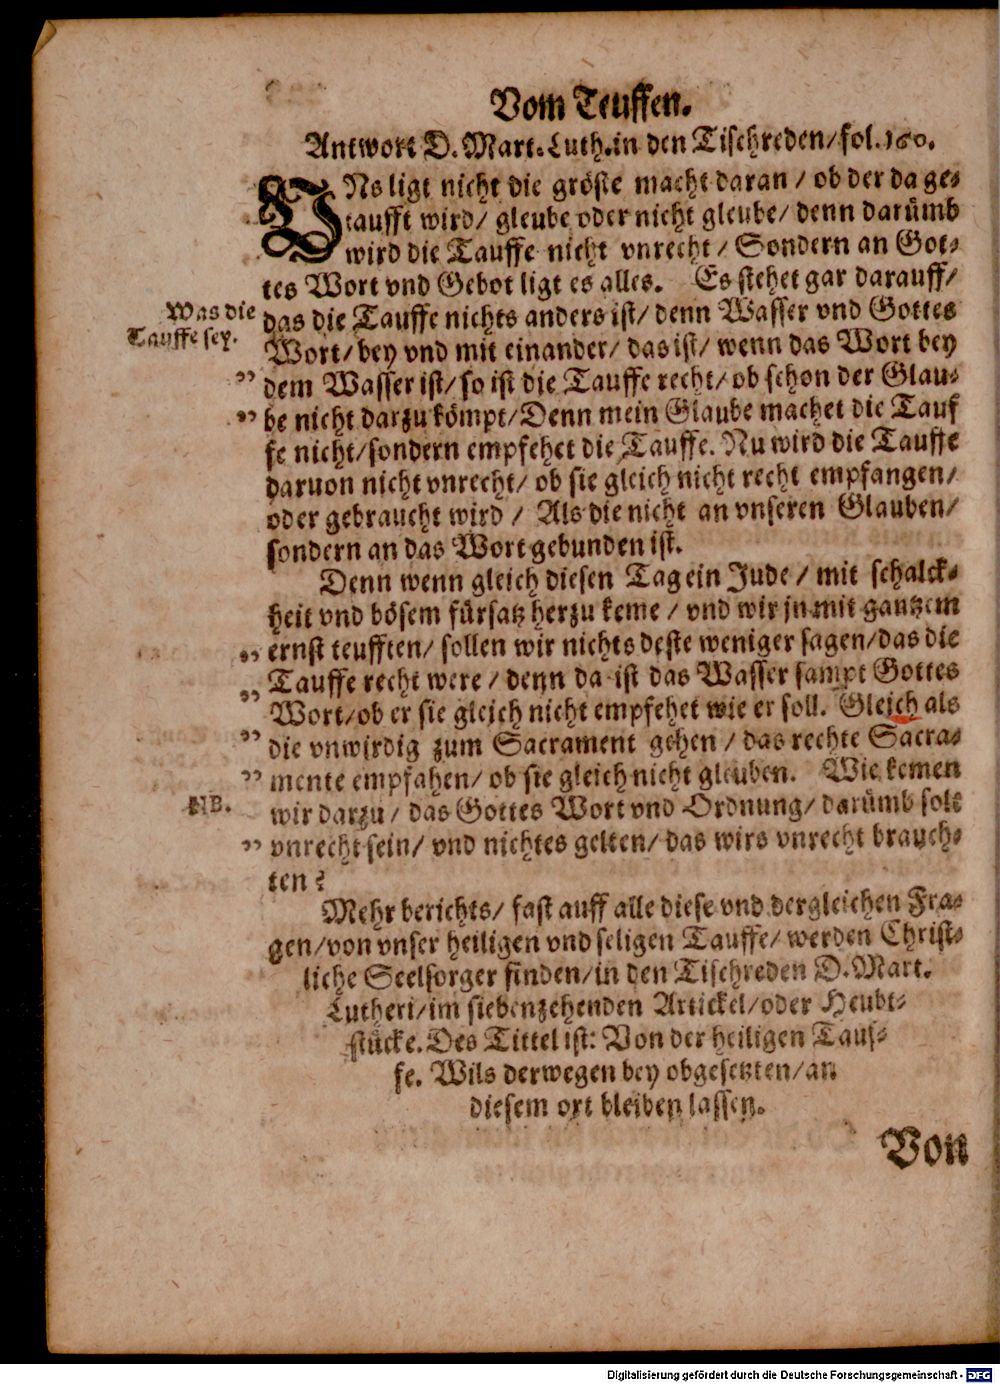 Vom Teuffen.
Antwort D. Mart. Luth. in den Tischreden/ fol. 160.
VNs ligt nicht die gröste macht daran / ob der da ge-
taufft wird/ gleube oder nicht gleube/ denn darümb
wird die Tauffe nicht vnrecht / Sondern an Got-
tes Wort vnd Gebot ligt es alles. Es stehet gar darauff/
Was die
Tauffe sey.
das die Tauffe nichts anders ist/ denn Wasser vnd Gottes
Wort/ bey vnd mit einander/ das ist/ wenn das Wort bey
" dem Wasser ist/ so ist die Tauffe recht/ ob schon der Glau-
" be nicht darzu kömpt/ Denn mein Glaube machet die Tauf
fe nicht/ sondern empfehet die Tauffe. Nu wird die Tauffe
daruon nicht vnrecht/ ob sie gleich nicht recht empfangen/
oder gebraucht wird / Als die nicht an vnseren Glauben/
sondern an das Wort gebunden ist.
Denn wenn gleich diesen Tag ein Jude / mit schalck-
heit vnd bösem fürsatz herzu keme / vnd wir jn mit gantzem
" ernst teufften/ sollen wir nichts deste weniger sagen/ das die
" Tauffe recht were / denn da ist das Wasser sampt Gottes
Wort/ ob er sie gleich nicht empfehet wie er soll. Gleich als
" die vnwirdig zum Sacrament gehen / das rechte Sacra-
" mente empfahen/ ob sie gleich nicht gleuben. Wie kemen
NB.
wir darzu / das Gottes Wort vnd Ordnung/ darümb solt
" vnrecht sein/ vnd nichtes gelten/ das wirs vnrecht brauch-
ten?
Mehr berichts/ fast auff alle diese vnd dergleichen Fra-
gen/ von vnser heiligen vnd seligen Tauffe/ werden Christ-
liche Seelsorger finden/ in den Tischreden D. Mart.
Lutheri/ im siebenzehenden Artickel/ oder Heubt-
stücke. Des Tittel ist: Von der heiligen Tauf-
fe. Wils derwegen bey obgesetzten/ an
diesem ort bleiben lassen.
Von
Digitalisierung gefördert durch die Deutsche Forschungsgemeinschaft - DFG